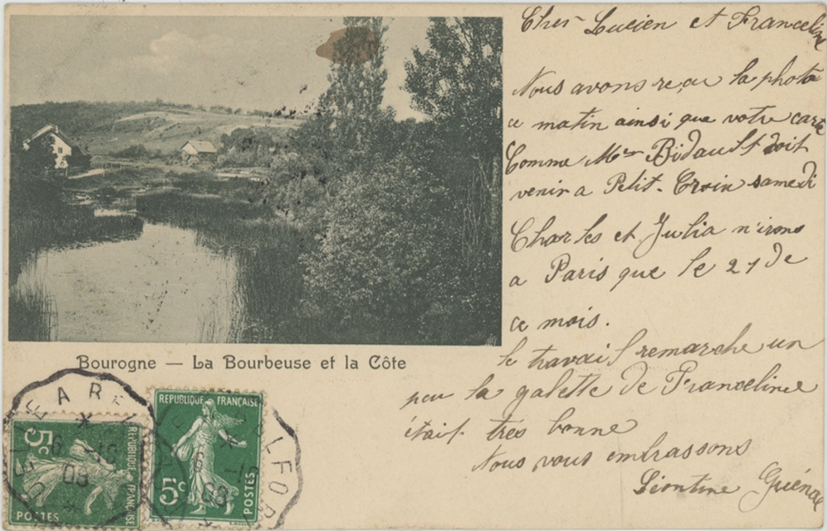 Cher Lucien et Franceline
Nous avons reçu la photo
ce matin ainsi que votre carte
Comme Mr Bidault doit
venir a Petit-Croix samedi
Charles et Julia n'irons
a Paris que le 21 de
ce mois.
le travail remarche un
peu la galette de Franceline
était très bonne
Nous vous embrassons
Léontine
Bourogne — La Bourbeuse et la Côte
REPUBLIQUE FRANÇAISE
5c
POSTES
REPUBLIQUE FRANÇAISE
5c
POSTES